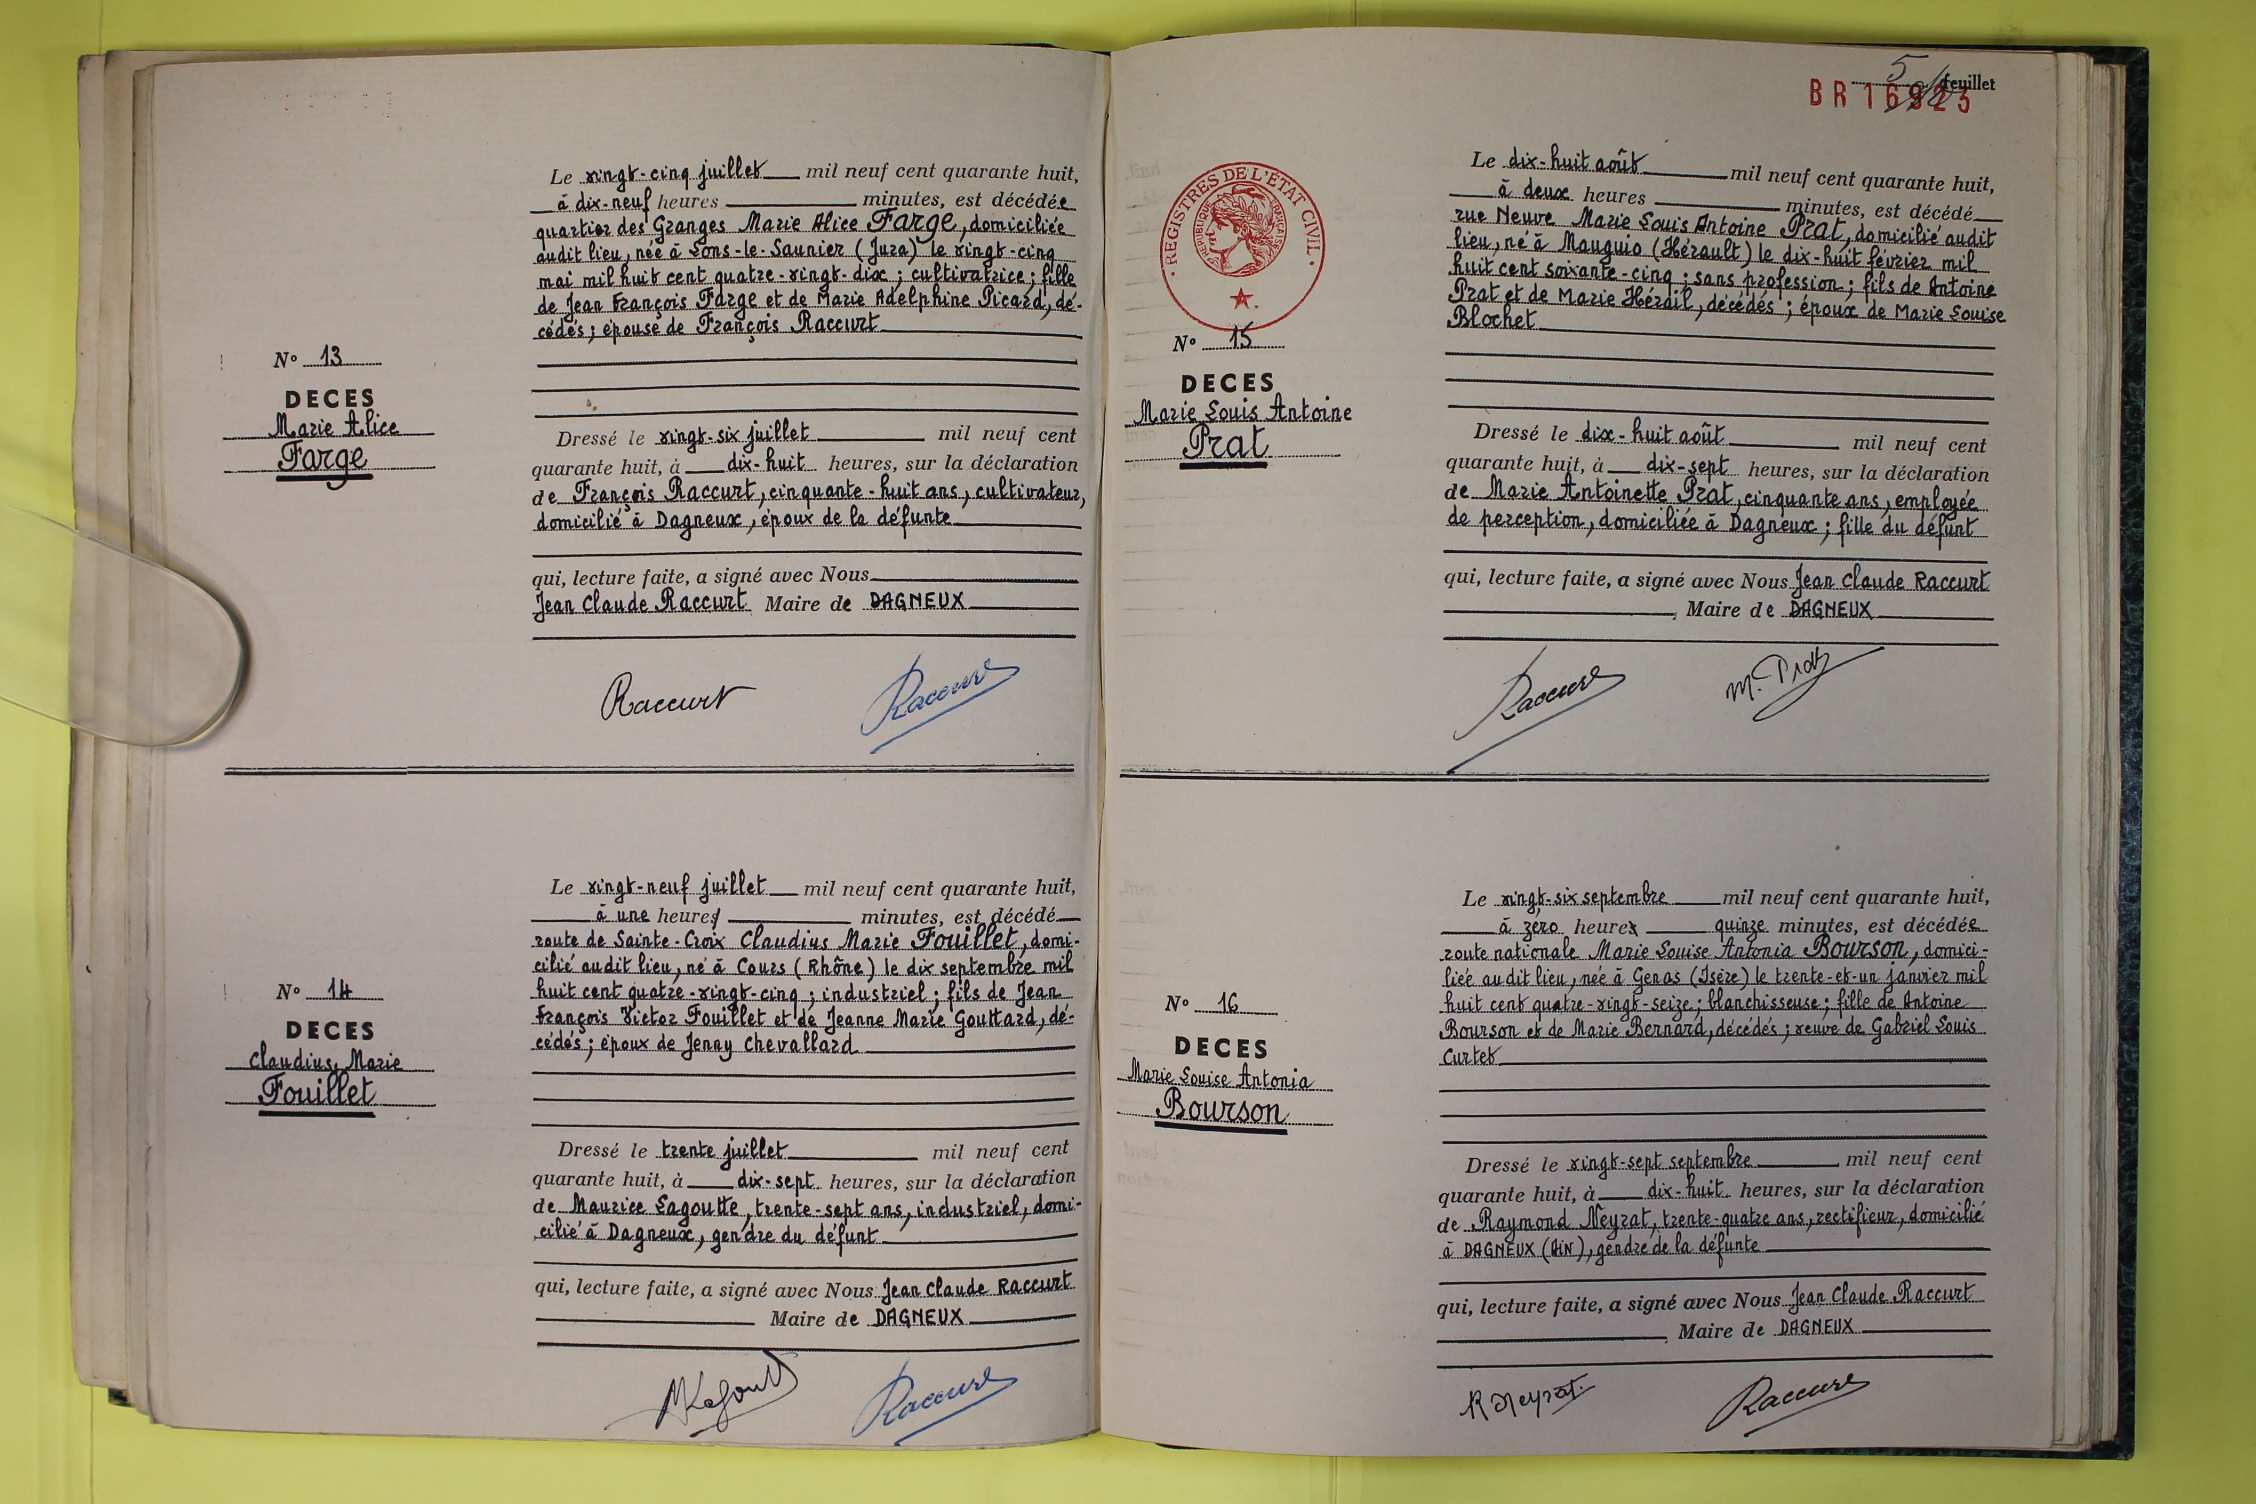 Le vingt-cinq juillet mil neuf cent quarante huit,
à dix-neuf heures minutes, est décédée
quartier des Granges Marie Alice Farge, domiciliée
audit lieu, née à Lons-le-Saunier (Jura) le vingt-cinq
mai mil huit cent quatre-vingt-dix ; cultivatrice ; fille
de Jean François Farge et de Marie Adelphine Picard, dé-
cédés ; épouse de François Raccurt
N° 13
DECES
Marie Alice
Farge
Dressé le vingt-six juillet mil neuf cent
quarante huit, à dix-huit heures, sur la déclaration
de François Raccurt, cinquante-huit ans, cultivateur,
domicilié à Dagneux, époux de la défunte
qui, lecture faite, a signé avec Nous
Jean Claude Raccurt Maire de DAGNEUX
Raccurt Raccurt
Le vingt-neuf juillet mil neuf cent quarante huit,
à une heure minutes, est décédé
route de Sainte-Croix Claudius Marie Fouillet, domi-
cilié audit lieu, né à Cours (Rhône) le dix septembre mil
huit cent quatre-vingt-cinq ; industriel ; fils de Jean
François Victor Fouillet et de Jeanne Marie Gouttard, dé-
cédés ; époux de Jenny Chevallard
N° 14
DECES
Claudius, Marie
Fouillet
Dressé le trente juillet mil neuf cent
quarante huit, à dix-sept heures, sur la déclaration
de Maurice Lagoutte, trente-sept ans, industriel, domi-
cilié à Dagneux, gendre du défunt
qui, lecture faite, a signé avec Nous Jean Claude Raccurt
Maire de DAGNEUX
MLagoutte Raccurt
5 feuillet
BR 16923
REGISTRES DE L'ÉTAT CIVIL
RÉPUBLIQUE FRANÇAISE
Le dix-huit août mil neuf cent quarante huit,
à deux heures minutes, est décédé
rue Neuve Marie Louis Antoine Prat, domicilié audit
lieu, né à Mauguio (Hérault) le dix-huit février mil
huit cent soixante-cinq ; sans profession ; fils de Antoine
Prat et de Marie Hérail, décédés ; époux de Marie Louise
Blochet
N° 15
DECES
Marie Louis Antoine
Prat
Dressé le dix-huit août mil neuf cent
quarante huit, à dix-sept heures, sur la déclaration
de Marie Antoinette Prat, cinquante ans, employée
de perception, domiciliée à Dagneux ; fille du défunt
qui, lecture faite, a signé avec Nous Jean Claude Raccurt
, Maire de DAGNEUX
Raccurt M. Prat
Le vingt-six septembre mil neuf cent quarante huit,
à zéro heure quinze minutes, est décédée
route nationale Marie Louise Antonia Bourson, domici-
liée audit lieu, née à Genas (Isère) le trente-et-un janvier mil
huit cent quatre-vingt-seize ; blanchisseuse ; fille de Antoine
Bourson et de Marie Bernard, décédés ; veuve de Gabriel Louis
Curtet
N° 16
DECES
Marie Louise Antonia
Bourson
Dressé le vingt-sept septembre mil neuf cent
quarante huit, à dix-huit heures, sur la déclaration
de Raymond Neyrat, trente-quatre ans, rectifieur, domicilié
à DAGNEUX (AIN), gendre de la défunte
qui, lecture faite, a signé avec Nous Jean Claude Raccurt
, Maire de DAGNEUX
R Neyrat. Raccurt